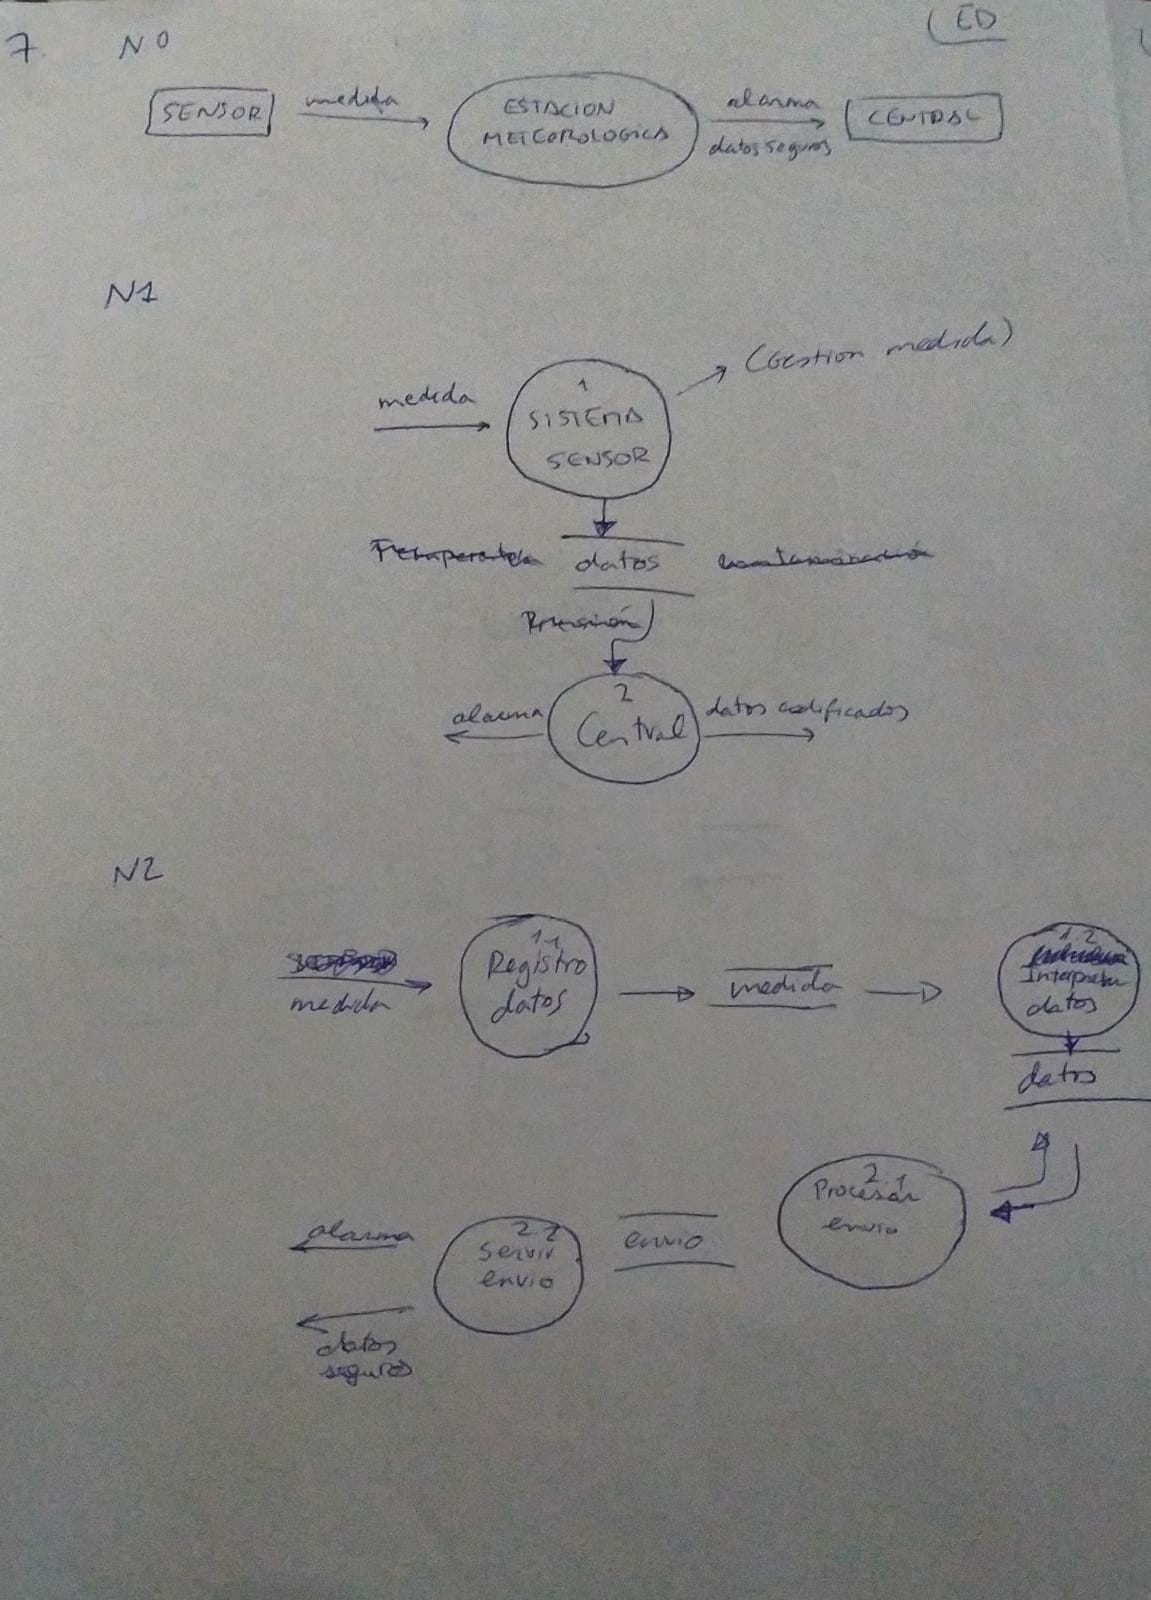 7. N0
ED
SENSOR
medida
ESTACION
METEOROLOGICA
alarma
datos seguros
CENTRAL
N1
medida
1
SISTEMA
SENSOR
(Gestion medida)
datos
2
Central
alarma
datos codificados
N2
medida
1.1
Registro
datos
medida
1.2
Interpretar
datos
datos
2.1
Procesar
envio
envio
2.2
Servir
envio
alarma
datos
seguros